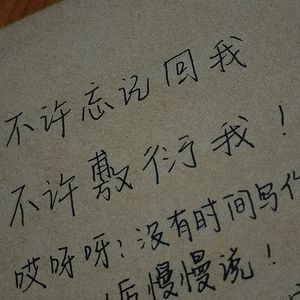 不许忘记回我
不许敷衍我！
哎呀呀：没有时间写作
后慢慢说！